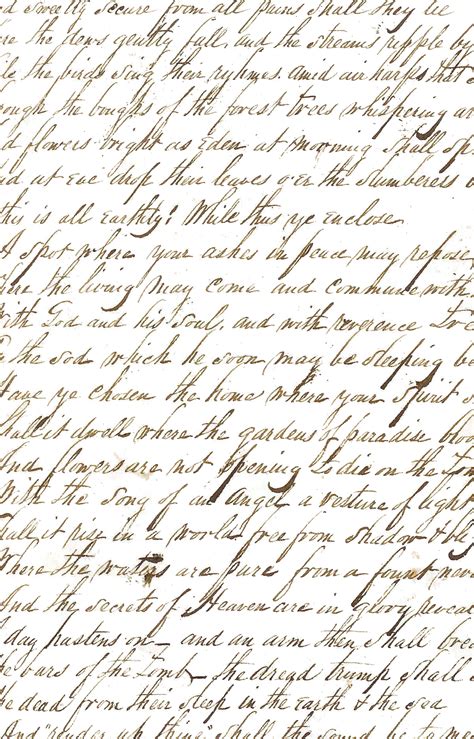 d sweetly secure from all pains shall they lie
re the dews gently fall and the streams ripple by
le the birds sing their rhymes amid air harps that
rough the boughs of the forest trees whispering ar
d flowers bright as Eden at morning shall sp
nd at Eve drop their leaves o'er the slumberers
this is all earthly! While thus ye enclose
A spot where your ashes in peace may repose
here the living may come and commune with
With God and his soul, and with reverence
the sod which he soon may be sleeping be
Have ye chosen the home where your Spirit s
Shall it dwell where the gardens of paradise blo
And flowers are not opening to die on the
With the song of an Angel a vesture of light
Shall it rise in a world free from shadow & bl
Where the waters are pure from a fount neve
And the secrets of Heaven are in glory reveal
A day hastens on — and an arm then shall brea
he bars of the Tomb — the dread trump shall
he dead from their sleep in the earth & the sea
And "render up thing" shall the sound be to